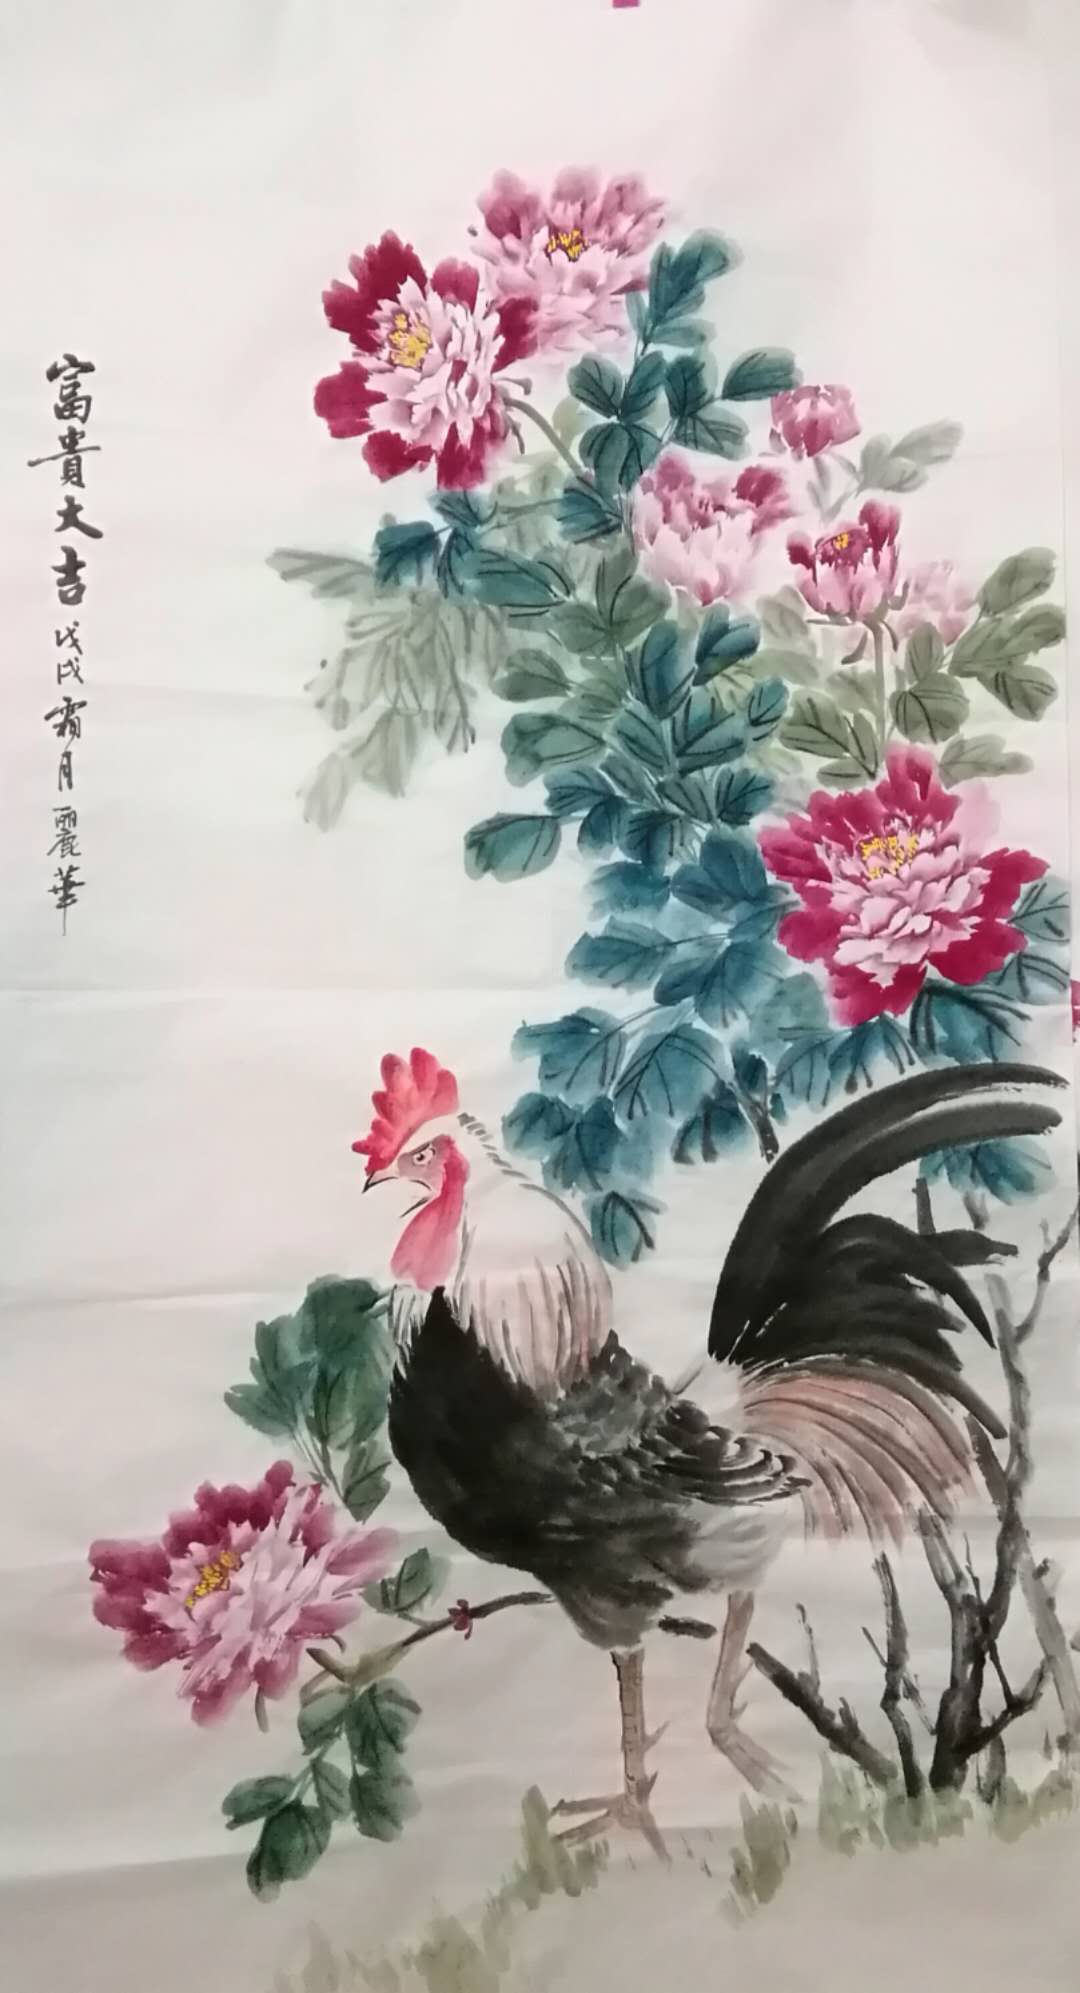 富貴大吉 戊戌霜月 麗華